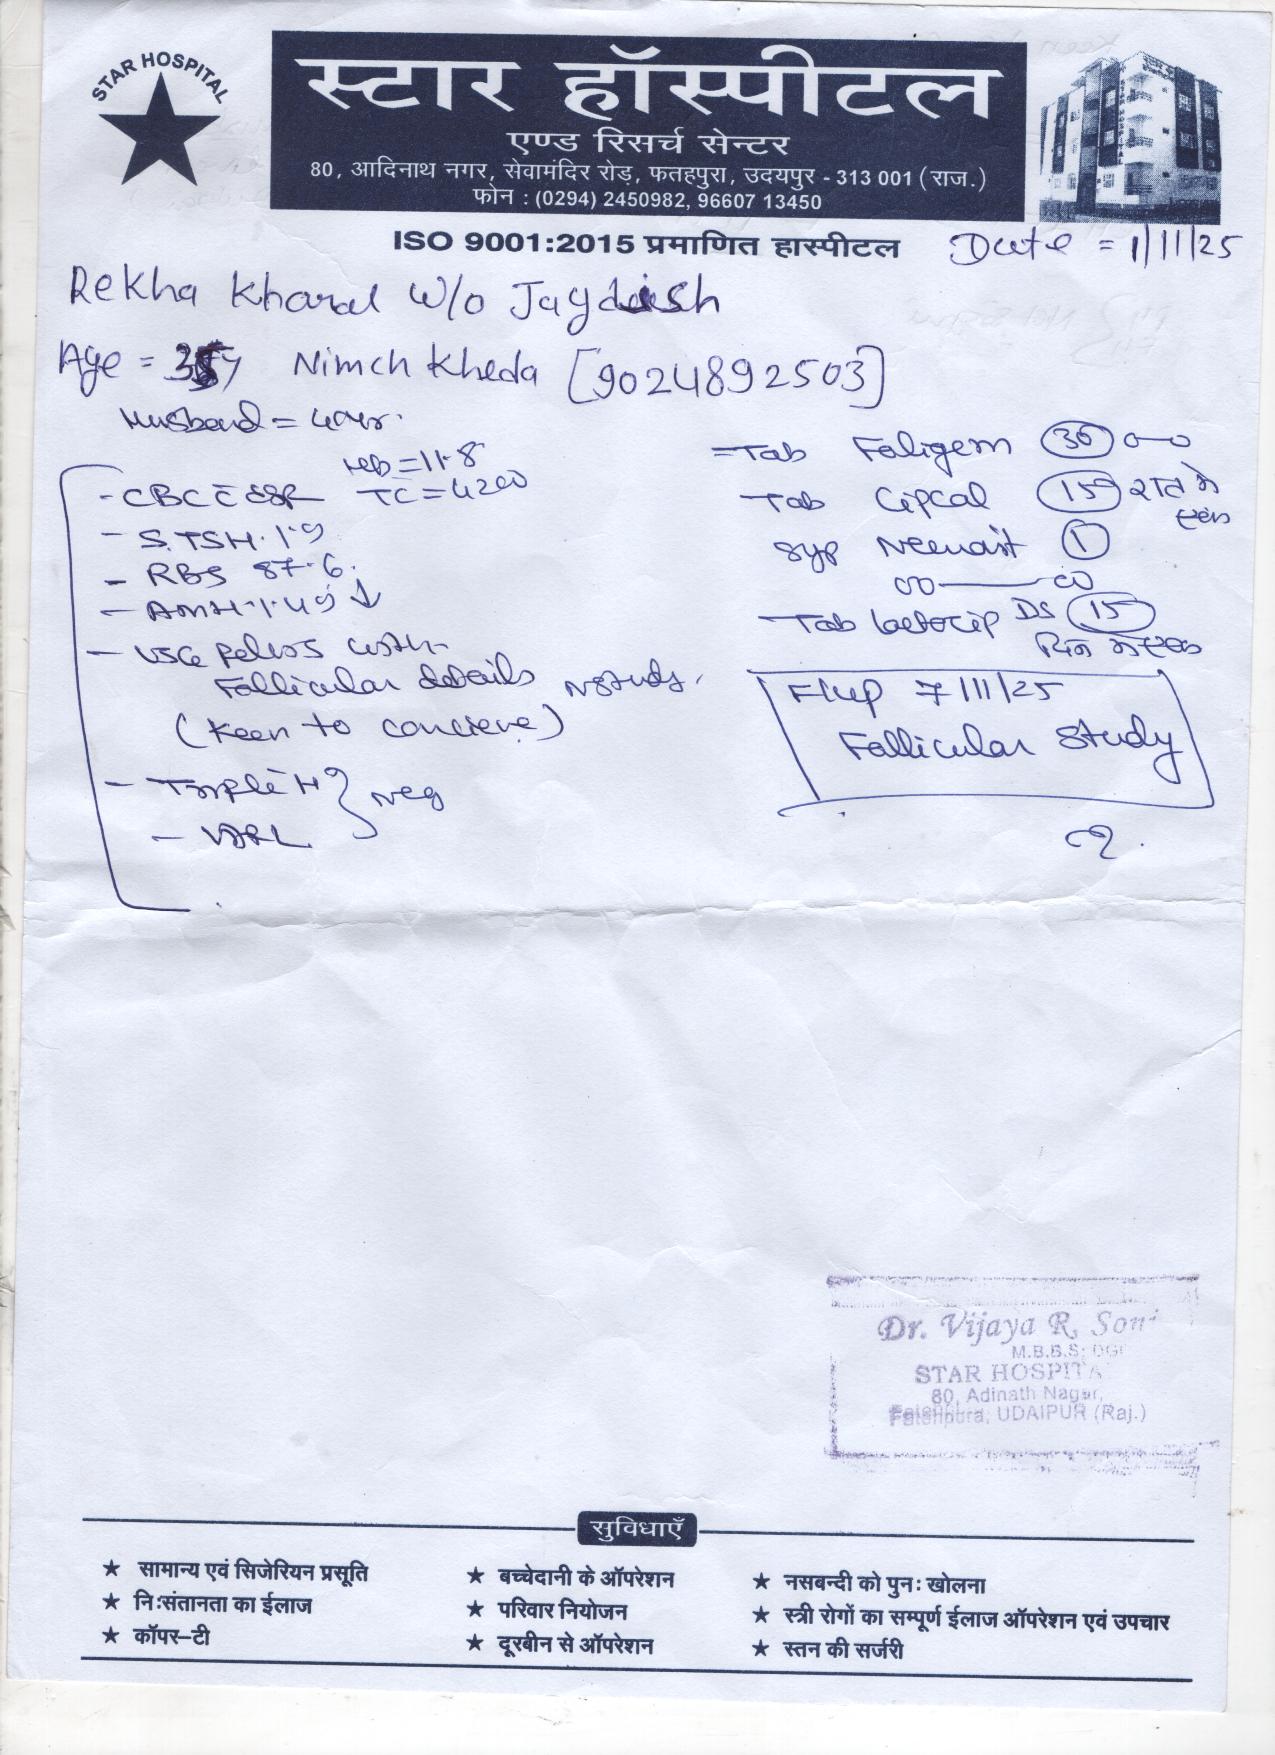 STAR HOSPITAL
स्टार हॉस्पीटल
एण्ड रिसर्च सेन्टर
80, आदिनाथ नगर, सेवामंदिर रोड़, फतहपुरा, उदयपुर - 313 001 (राज.)
फोन : (0294) 2450982, 96607 13450
ISO 9001:2015 प्रमाणित हास्पीटल
Date = 1/11/25
Rekha Kharal W/o Jaydish
Age = Nimch Kheda [9024892503]
Husband =
Hb = 11.8
- CBC c ESR TC = 4200
- S.TSH. 1.9
- RBS 87.6.
- AMH. 1.49 ↓
- USG pelvis with
Follicular details study.
(Keen to concieve)
- Triple H } Neg
- VDRL
- Tab Foligem (30) 0-0
- Tab Cipcal (15) रात मे एक
Syp (1)
- Tab DS (15)
दिन मे एक
Flup 7/11/25
Follicular Study
Dr. Vijaya R. Soni
M.B.B.S; DG
STAR HOSPITA
80, Adinath Nagar,
Fatehpura, UDAIPUR (Raj.)
सुविधाएँ
★ सामान्य एवं सिजेरियन प्रसूति
★ निःसंतानता का ईलाज
★ कॉपर-टी
★ बच्चेदानी के ऑपरेशन
★ परिवार नियोजन
★ दूरबीन से ऑपरेशन
★ नसबन्दी को पुनः खोलना
★ स्त्री रोगों का सम्पूर्ण ईलाज ऑपरेशन एवं उपचार
★ स्तन की सर्जरी